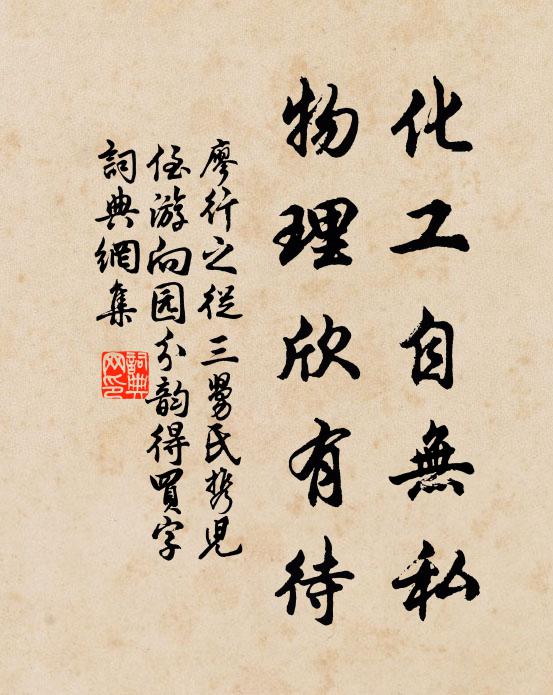 化工自無私
物理欣有待
廖行之從三舅氏携児
侄游向园分韵得買字
詞典網集
詞典網印